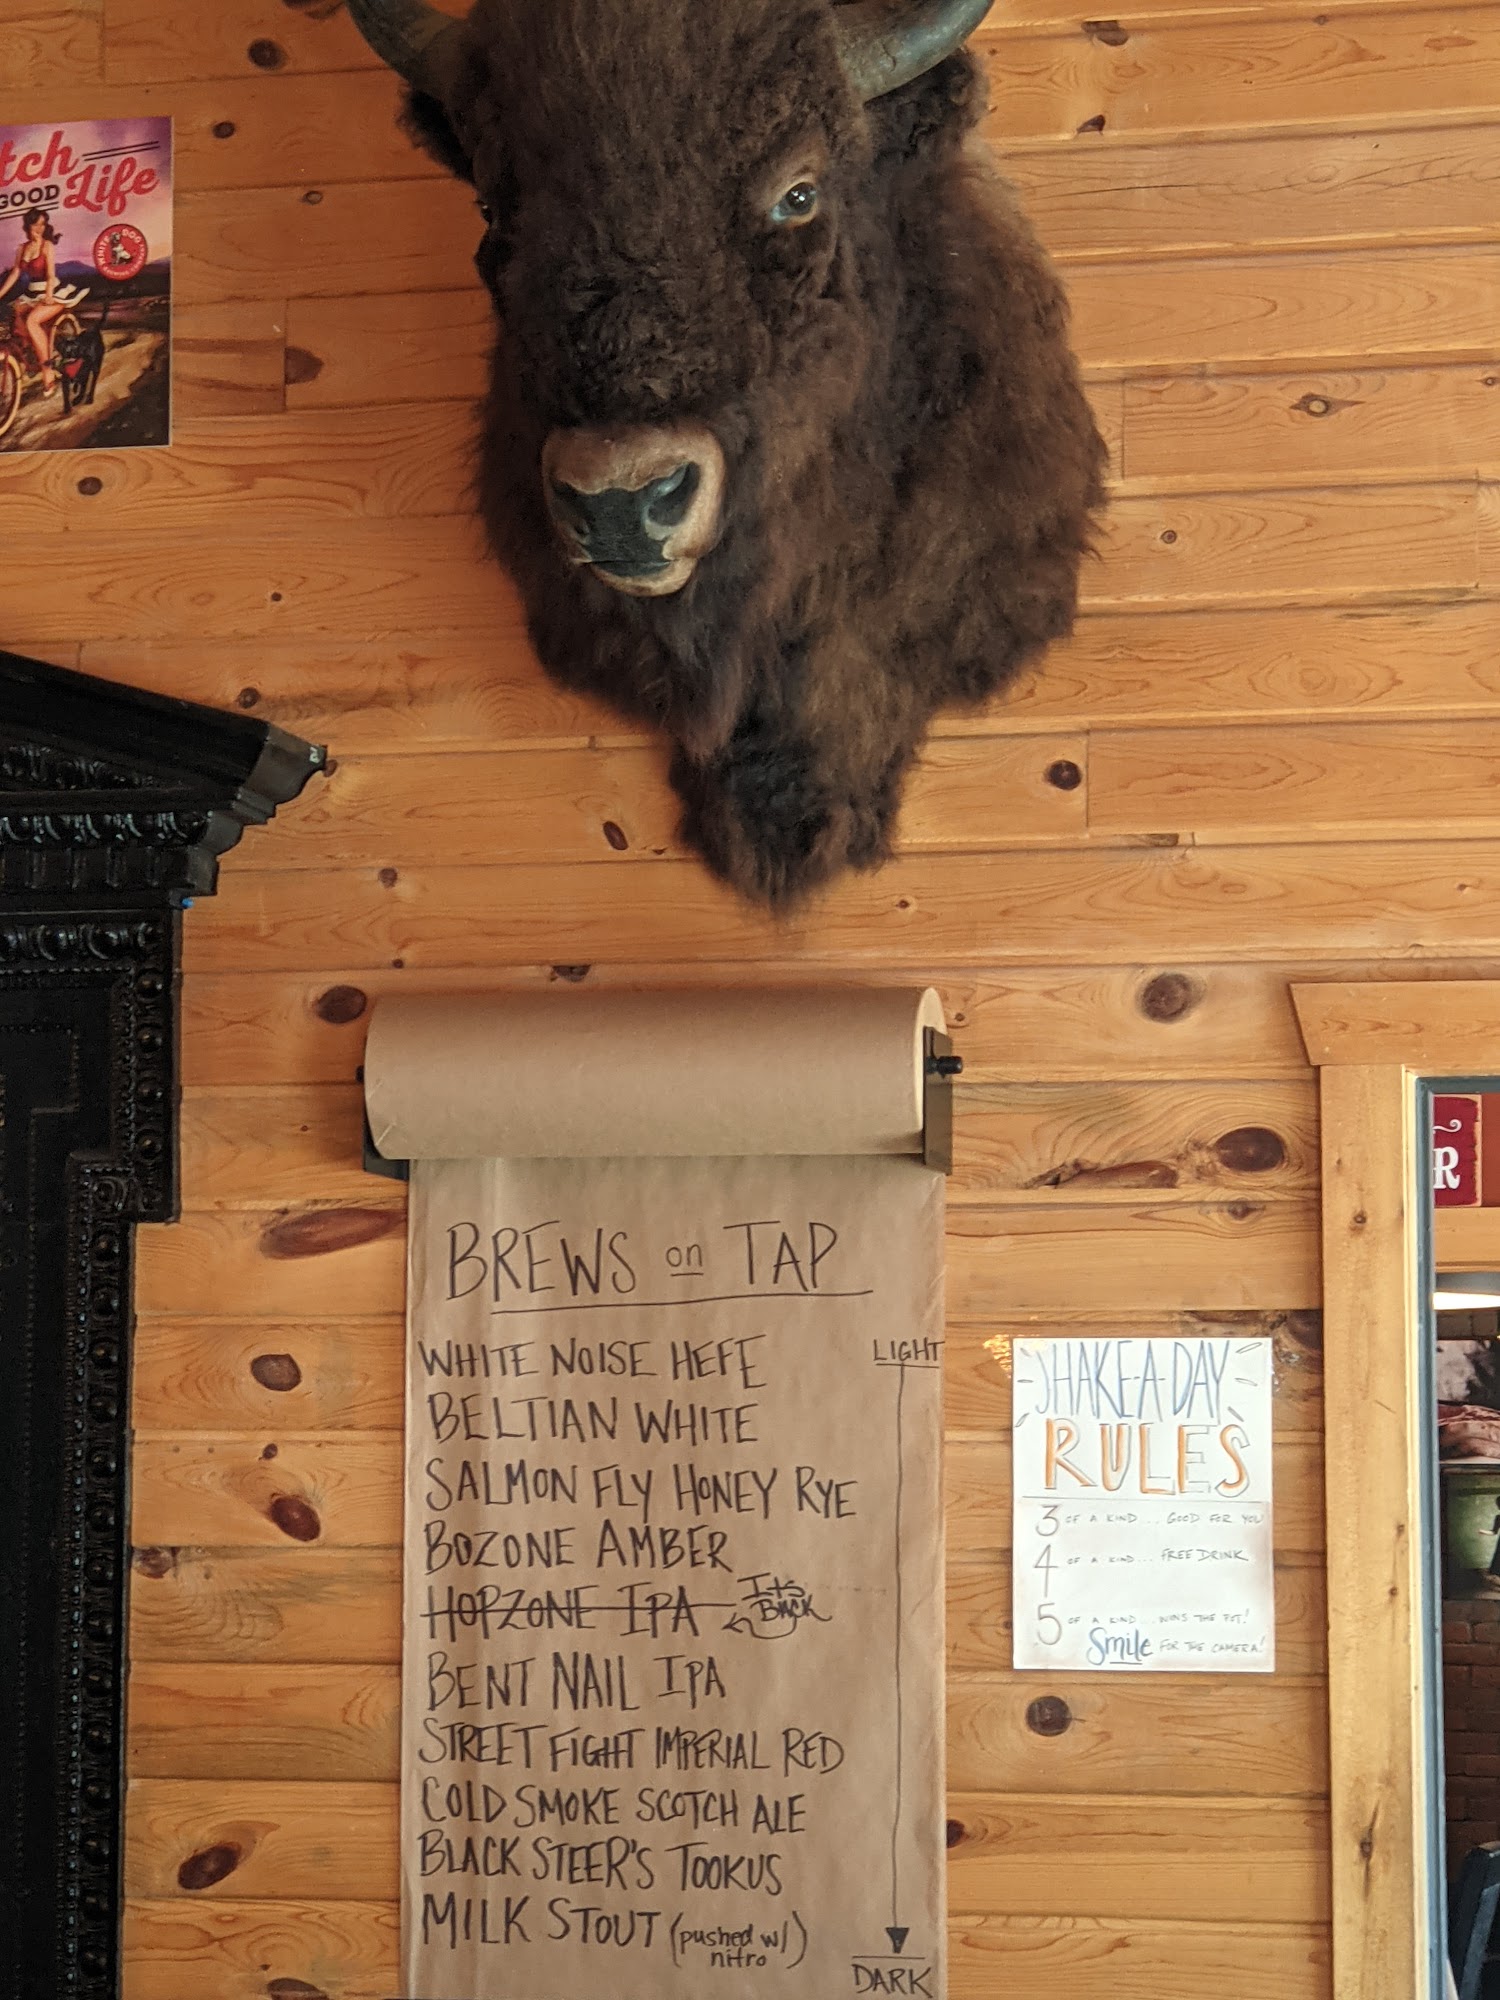 tch
GOOD Life
WHITE DOG
BREWING COMPANY
R
BREWS on TAP
LIGHT
WHITE NOISE HEFE
BELTIAN WHITE
SALMON FLY HONEY RYE
BOZONE AMBER
HOPZONE IPA Its BACK
BENT NAIL IPA
STREET FIGHT IMPERIAL RED
COLD SMOKE SCOTCH ALE
BLACK STEER'S TOOKUS
MILK STOUT (pushed w/ nitro)
DARK
SHAKE-A-DAY
RULES
3 OF A KIND... GOOD FOR YOU
4 OF A KIND... FREE DRINK
5 OF A KIND... WINS THE POT!
Smile FOR THE CAMERA!